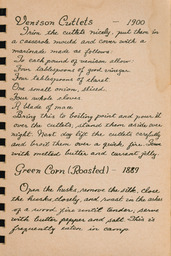 Venison Cutlets — 1900
Trim the cutlets nicely, put them in
a casserole mould and cover with a
marinade made as follows.
To each pound of venison allow
Four tablespoons of good vinegar
Four tablespoons of claret
One small onion, sliced
Four whole cloves
A blade of mace
Bring this to boiling point and pour it
over the cutlets, stand them aside over
night. Next day lift the cutlets carefully
and broil them over a quick fire. Serve
with melted butter and currant jelly.
Green Corn (Roasted) — 1889
Open the husks, remove the silk, close
the husks closely, and roast in the ashes
of a wood fire until tender, serve
with butter pepper and salt. This is
frequently eaten in camp